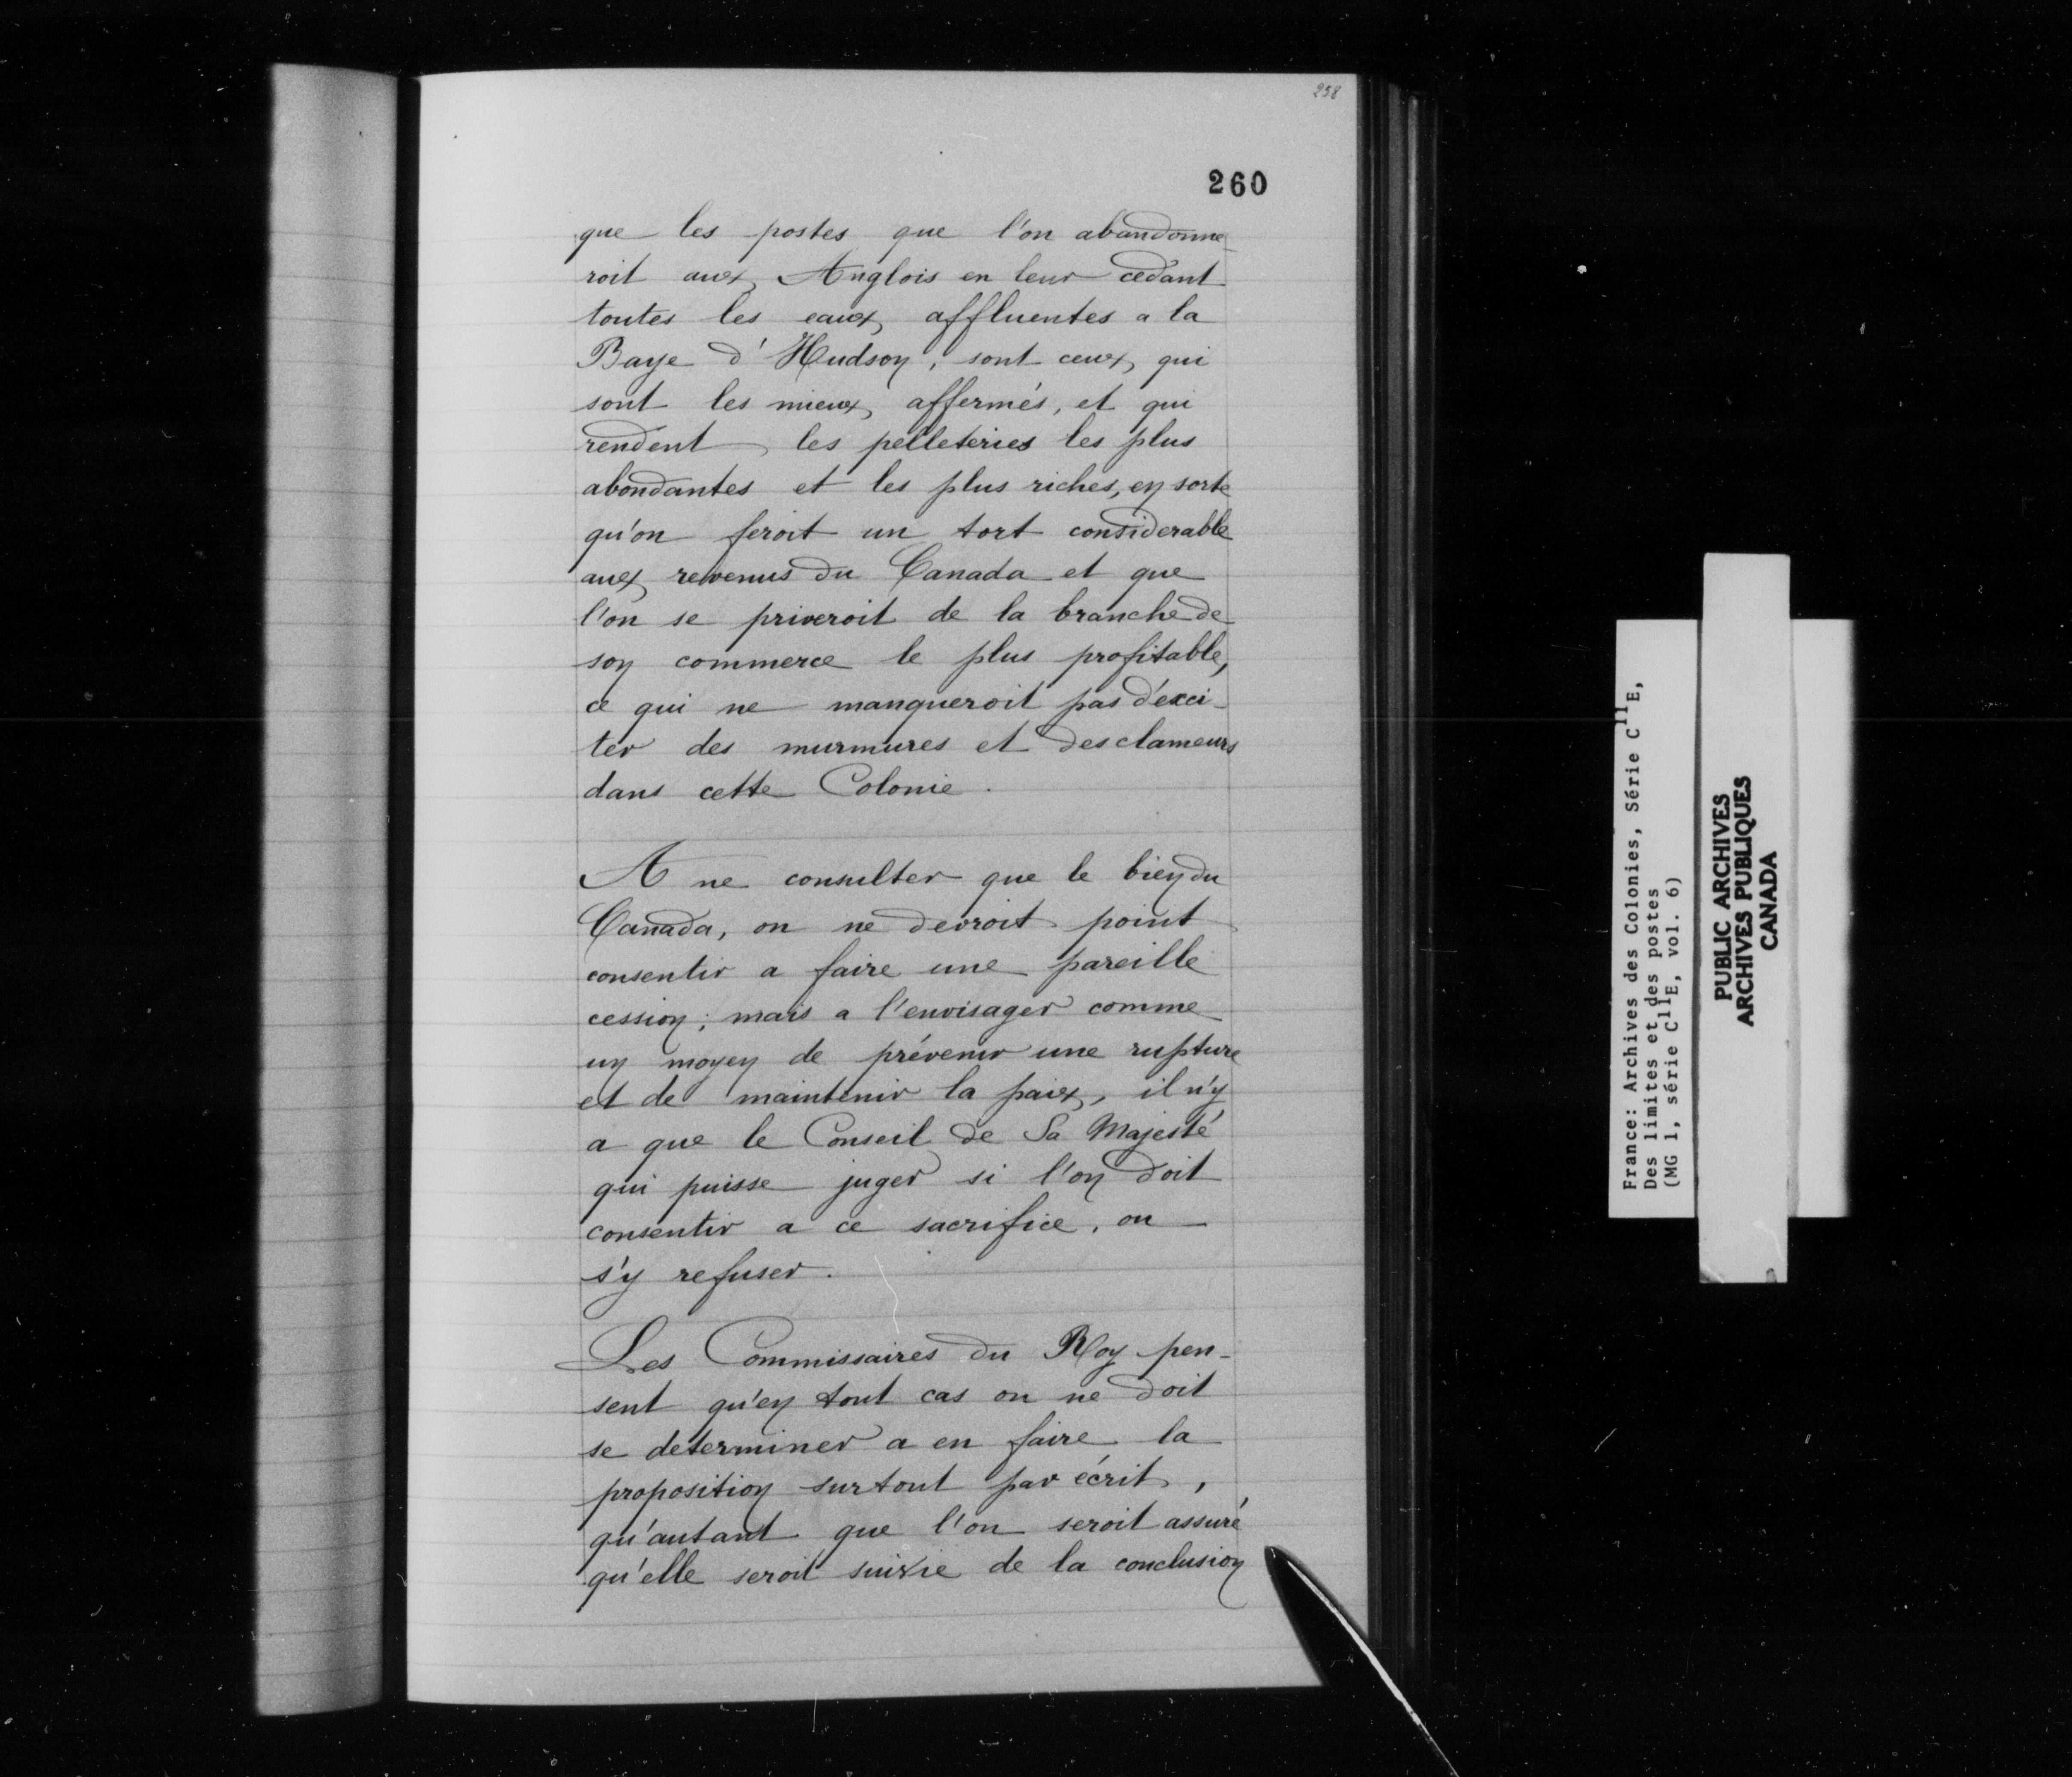 258
260
que les postes que l'on abandonne-
roit aux Anglois en leur cedant
toutes les eaux affluentes a la
Baye d'Hudson, sont ceux qui
sont les mieux affermés, et qui
rendent les pelleteries les plus
abondantes et les plus riches, en sorte
qu'on feroit un tort considerable
aux revenus du Canada et que
l'on se priveroit de la branche de
son commerce le plus profitable,
ce qui ne manqueroit pas d'exci-
ter des murmures et des clameurs
dans cette Colonie.
A ne consulter que le bien du
Canada, on ne devroit point
consentir a faire une pareille
cession; mais a l'envisager comme
un moyen de prévenir une rupture
et de maintenir la paix, il n'y
a que le Conseil de Sa Majesté
qui puisse juger si l'on doit
consentir a ce sacrifice, ou
s'y refuser.
Les Commissaires du Roy pen-
sent qu'en tout cas on ne doit
se determiner a en faire la
proposition surtout par écrit,
qu'autant que l'on seroit assuré
qu'elle seroit suivie de la conclusion
France: Archives des Colonies, Série C11E,
Des limites et des postes
(MG 1, série C11E, vol. 6)
PUBLIC ARCHIVES
ARCHIVES PUBLIQUES
CANADA